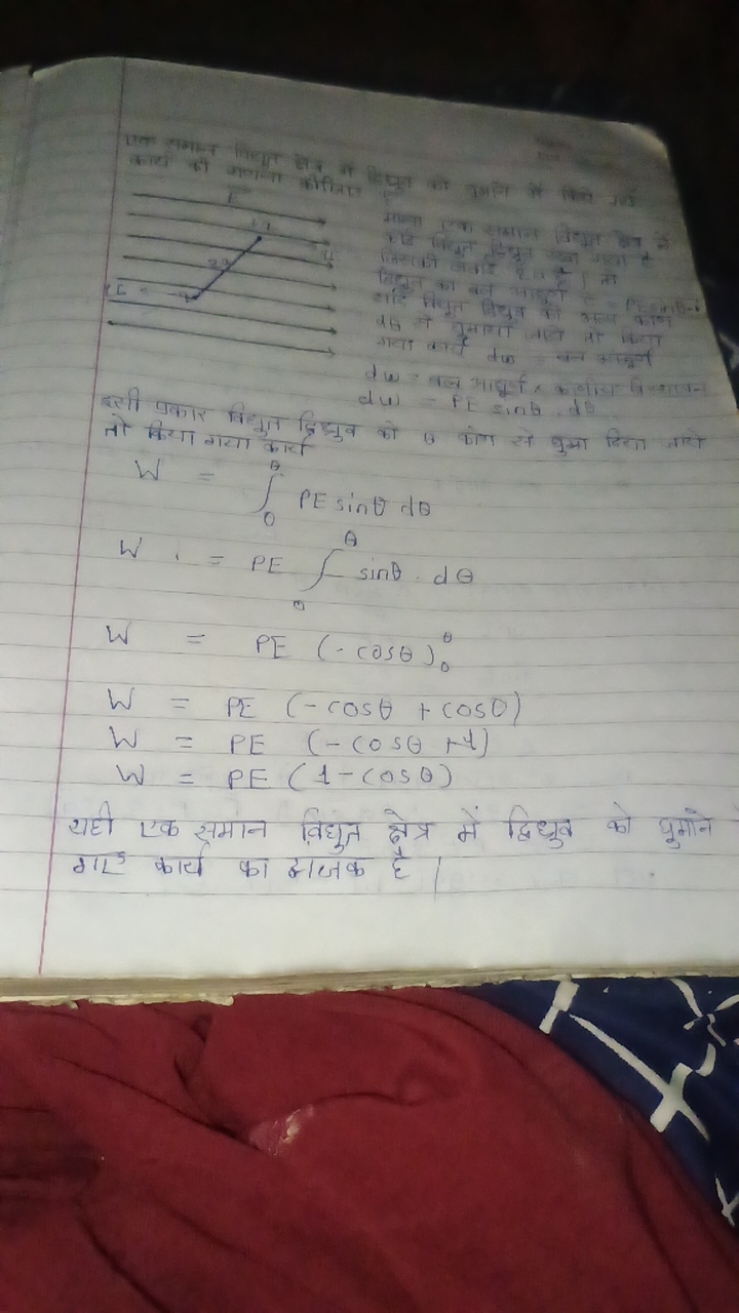 एक समान विद्युत क्षेत्र में द्विध्रुव को घुमाने में किये गये
कार्य की गणना कीजिए
E
माना एक समान विद्युत क्षेत्र में
रखा गया है
2a
जिसकी लंबाई 2a है। तो
यदि विद्युत द्विध्रुव को अल्प कोण
dθ से घुमाया जाये तो किया
गया कार्य dw = बल आघूर्ण
dw = बल आघूर्ण × कोणीय विस्थापन
dw = PE sinθ . dθ
इसी प्रकार विद्युत द्विध्रुव को θ कोण से घुमा दिया जाये
तो किया गया कार्य
W = ∫₀^θ PE sinθ dθ
W = PE ∫₀^θ sinθ . dθ
W = PE (-cosθ)₀^θ
W = PE (-cosθ + cos0)
W = PE (-cosθ + 1)
W = PE (1 - cosθ)
यही एक समान विद्युत क्षेत्र में द्विध्रुव को घुमाने
गए कार्य का है।